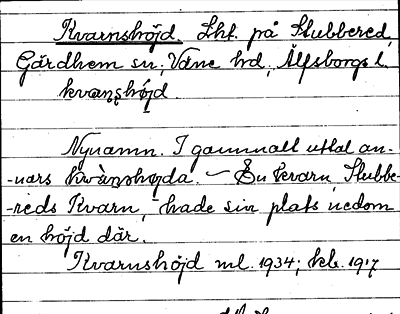 Kvarnshöjd. Lht. på Stubbered,
Gärdhem sn; Väne hd, Älfsborgs l.
kvaṇshöjd.
Nynamn. I gammalt uttal an-
-nars kvàṇshøjda. – En kvarn, Stubbe-
-reds Kvarn, hade sin plats nedom
en höjd där.
Kvarnshöjd ml. 1934; kb. 1917